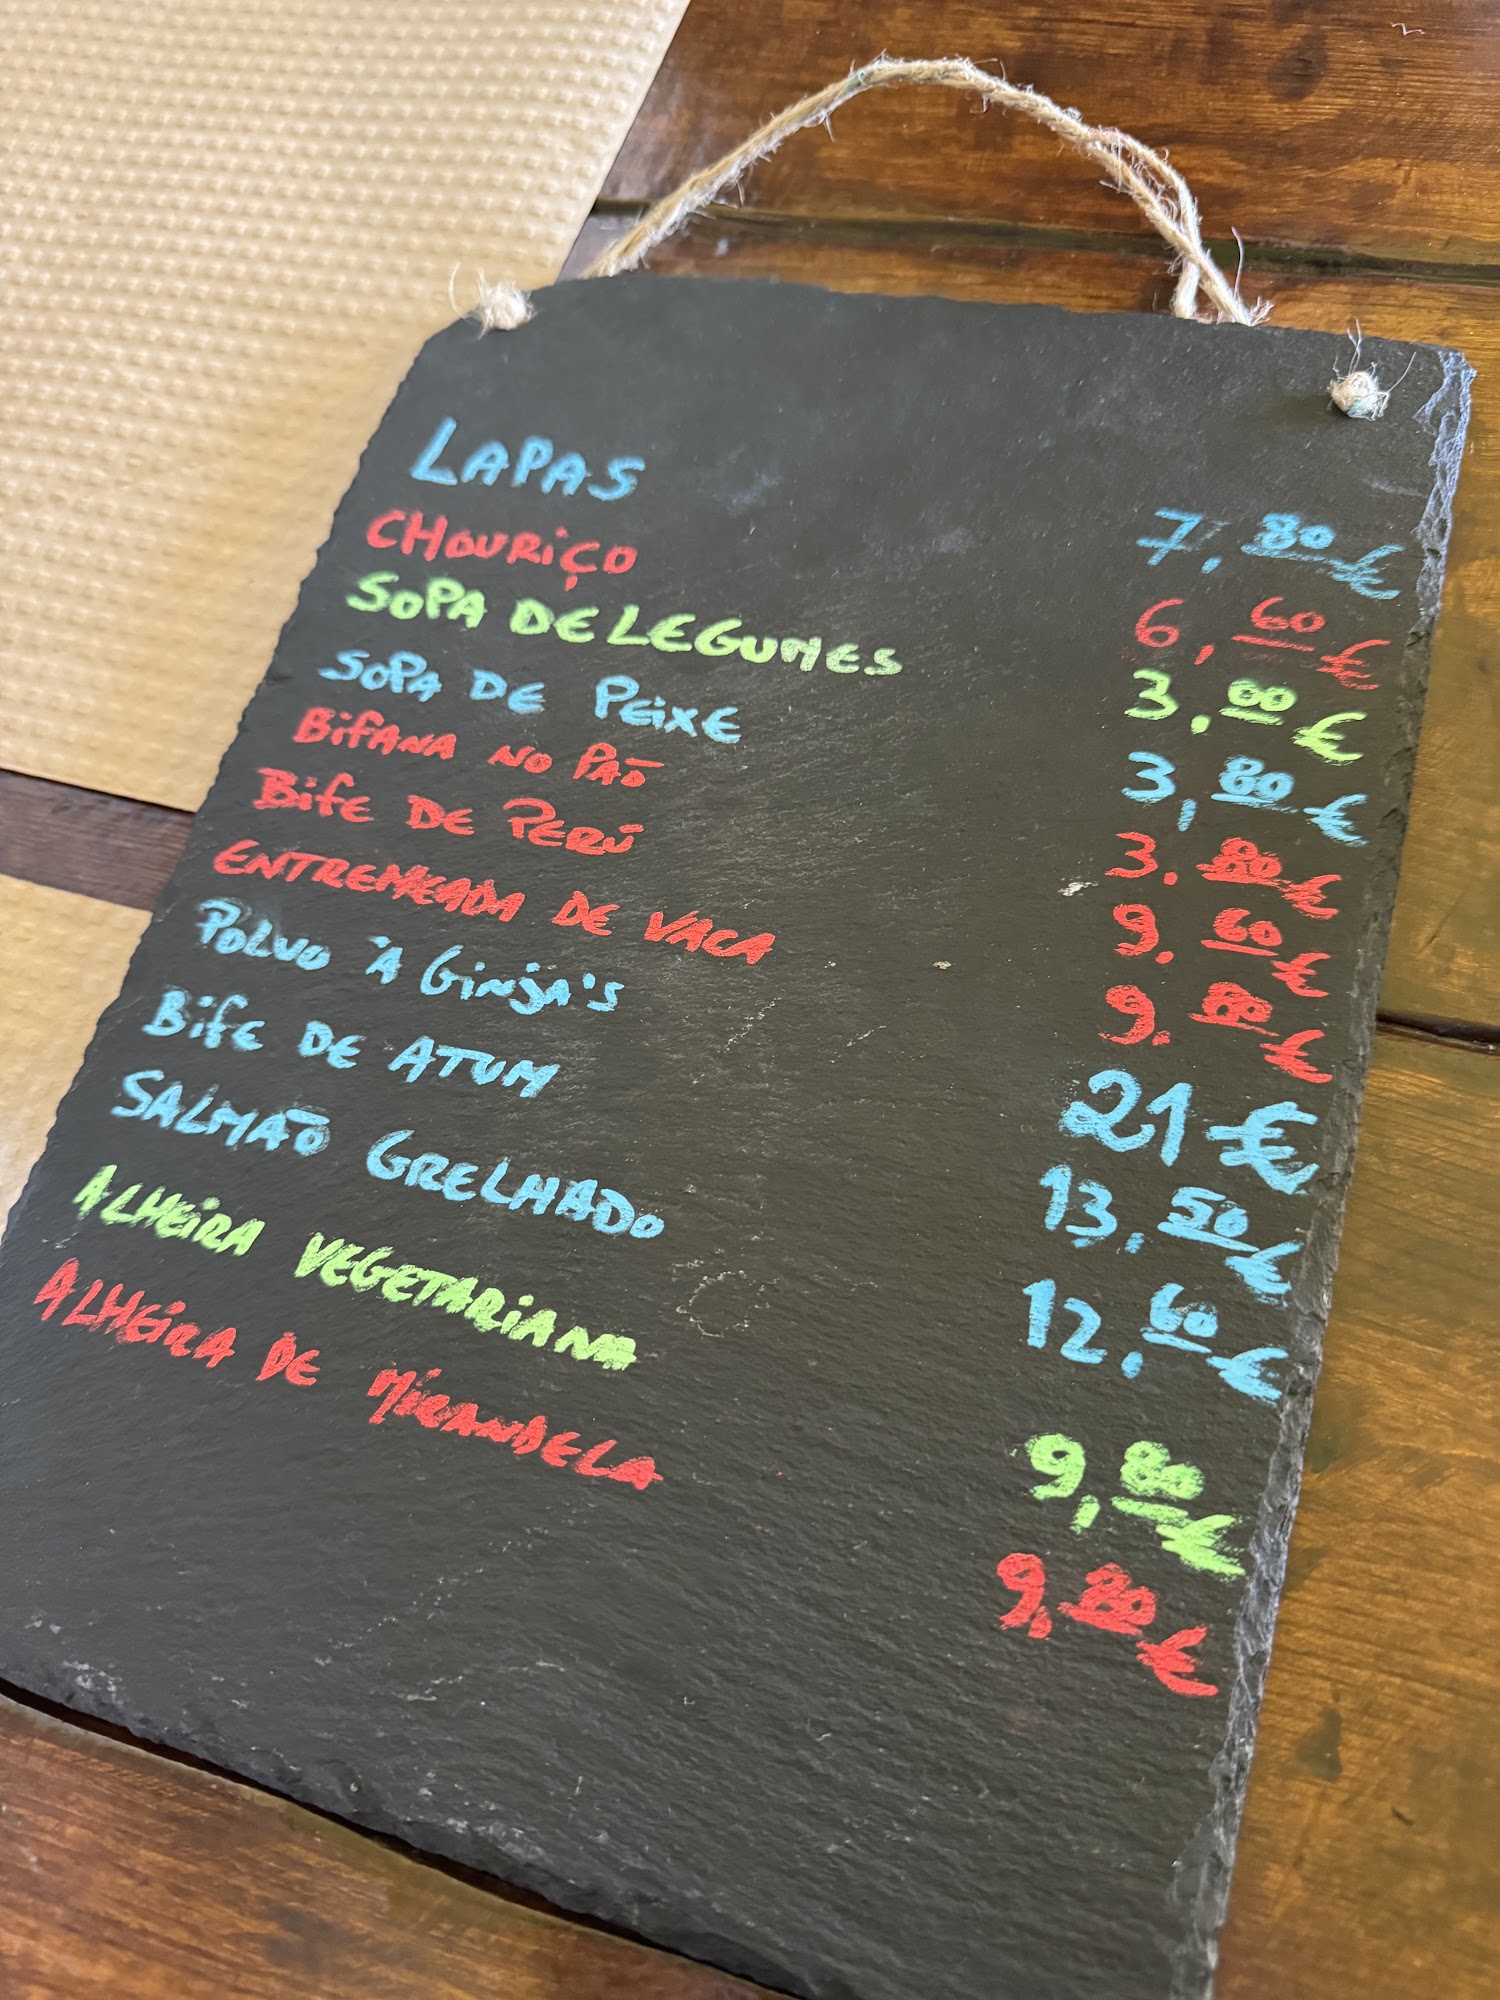 LAPAS 7,80€
CHOURIÇO 6,60€
SOPA DE LEGUMES 3,00€
SOPA DE PEIXE 3,80€
BIFANA NO PÃO 3.80€
BIFE DE PERÚ 9.60€
ENTREMEADA DE VACA 9.80€
POLVO À GINJA'S 21€
BIFE DE ATUM 13,50€
SALMÃO GRELHADO 12,60€
ALHEIRA VEGETARIANA 9,80€
ALHEIRA DE MIRANDELA 9,80€